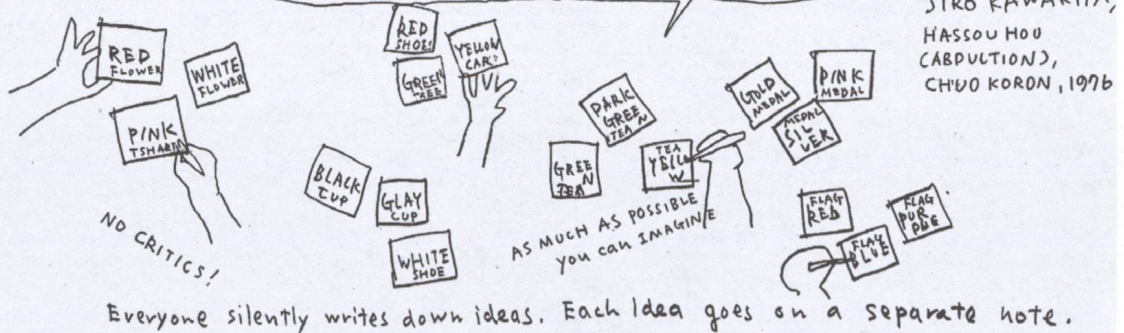 JIRO KAWAKITA,
HASSOU HOU
(ABDUCTION),
CHUO KORON, 1976
RED
FLOWER
WHITE
FLOWER
PINK
TSHART
RED
SHOES
YELLOW
CAR?
GREEN
TEE
BLACK
CUP
GLAY
CUP
WHITE
SHOE
DARK
GREE
N
TEA
GREE
N
TEA
TEA
YELLO
W
GOLD
MEDAL
PINK
MEDAL
MEDAL
SIL
VER
FLAG
RED
FLAG
PUR
PLE
FLAG
BLUE
NO CRITICS!
AS MUCH AS POSSIBLE
you can IMAGINE
Everyone silently writes down ideas. Each Idea goes on a separate note.